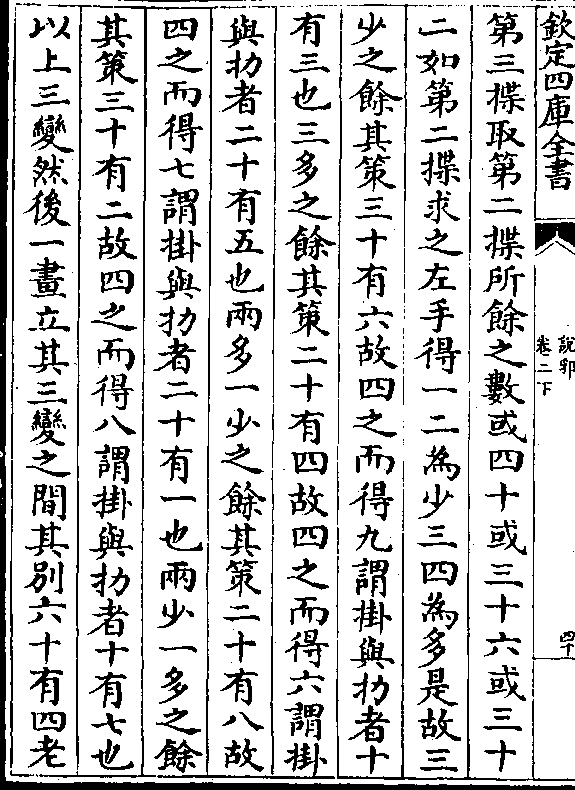 欽定四庫全書
說郛
卷二下
四十
第三揲取第二揲所餘之數或四十或三十六或三十
二如第二揲求之左手得一二為少三四為多是故三
少之餘其策三十有六故四之而得九謂掛與扐者十
有三也三多之餘其策二十有四故四之而得六謂掛
與扐者二十有五也兩多一少之餘其策二十有八故
四之而得七謂掛與扐者二十有一也兩少一多之餘
其策三十有二故四之而得八謂掛與扐者十有七也
以上三變然後一畫立其三變之間其別六十有四老